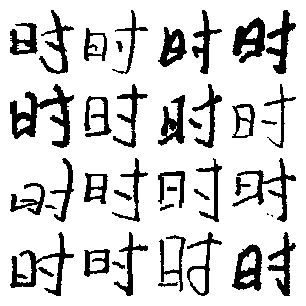 时时时时
时时时时
时时时时
时时时时